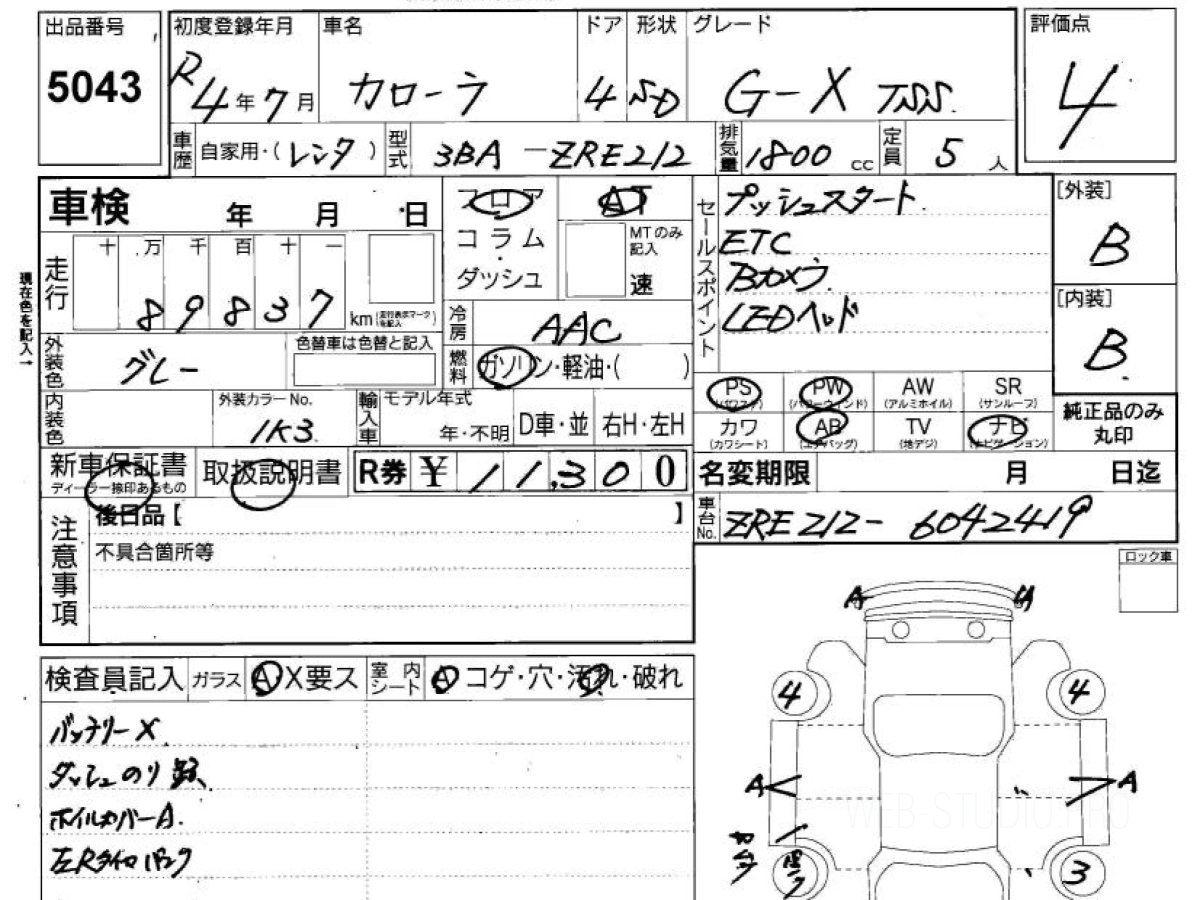 出品番号
5043
初度登録年月 車名 ドア 形状 グレード
R4年7月 カローラ 4 SD G-X TSS.
評価点
4
車歴 自家用・(レンタ) 型式 3BA-ZRE212 排気量 1800cc 定員 5人
車検 年 月 日
フロア
コラム
・
ダッシュ
AT
MTのみ記入
速
セールスポイント
プッシュスタート
ETC
Bカメラ
LEDヘッド
[外装]
B
[内装]
B
純正品のみ
丸印
現在色を記入→
走行 十 万 千 百 十 一
89837 km (走行表示マークを記入)
冷房 AAC
燃料 ガソリン・軽油・( )
外装色 グレー 色替車は色替と記入
内装色 外装カラーNo. 1K3
輸入車 モデル年式 年・不明 D車・並 右H・左H
PS (パワステ) PW (パワーウインド) AW (アルミホイル) SR (サンルーフ)
カワ (カワシート) AB (エアバッグ) TV (地デジ) ナビ (ナビゲーション)
新車保証書
ディーラー捺印あるもの
取扱説明書 R券 ¥11,300
名変期限 月 日迄
車台No. ZRE212-6042419
注意事項
後日品【 】
不具合箇所等
ロック車
検査員記入 ガラス A X要ス 室内シート A コゲ・穴・汚れ・破れ
バッテリーX
ダッシュのり
ホイルカバーA.
左Rタイヤパンク
A A
4 4
A A
3
WEB-STUDIO1.RU